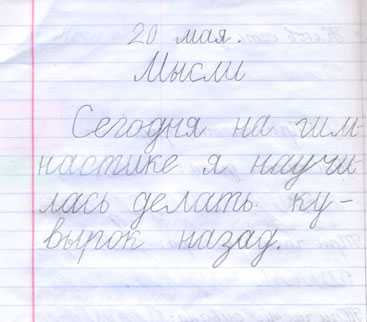 20 мая.
Мысли
Сегодня на гим
настике я научи
лась делать ку-
вырок назад.